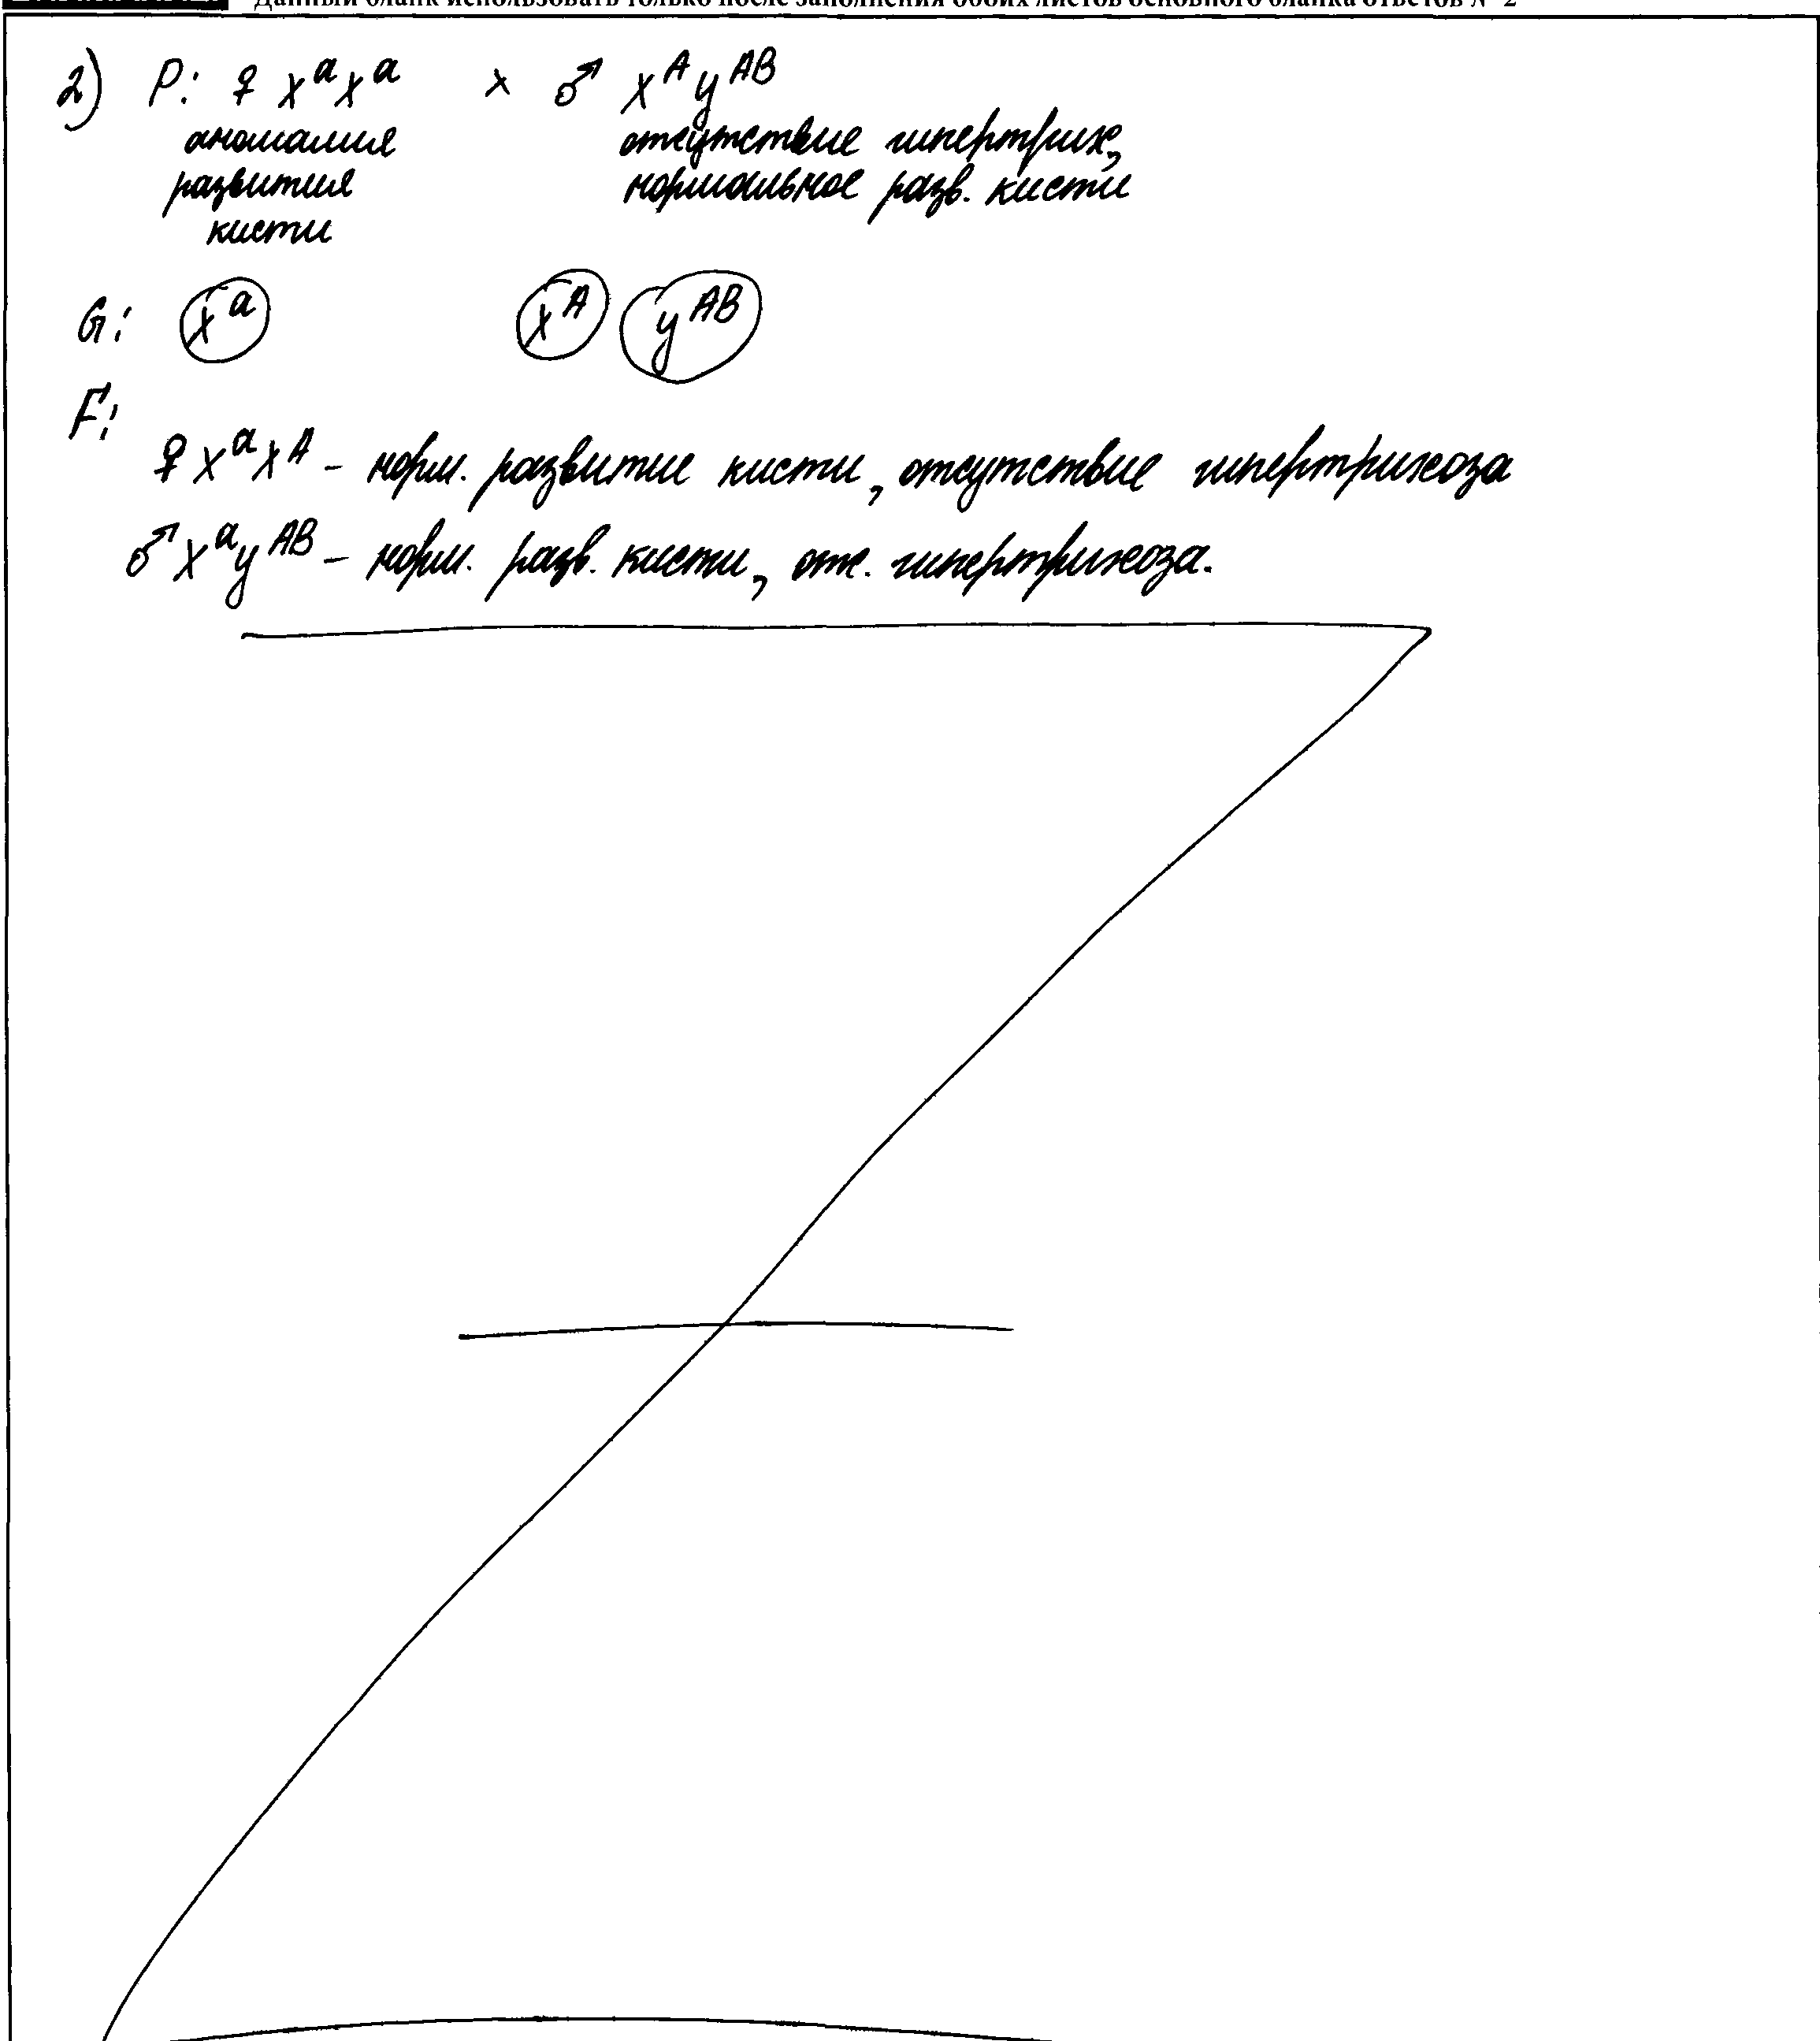 Данный бланк использовать только после заполнения обоих листов основного бланка ответов № 2
2) P: ♀ X^a X^a × ♂ X^A Y^AB
аномалия отсутствие гипертрих,
развития нормальное разв. кисти
кисти
G: X^a X^A Y^AB
F:
♀ X^a X^A – норм. развитие кисти, отсутствие гипертрихоза
♂ X^a Y^AB – норм. разв. кисти, отс. гипертрихоза.